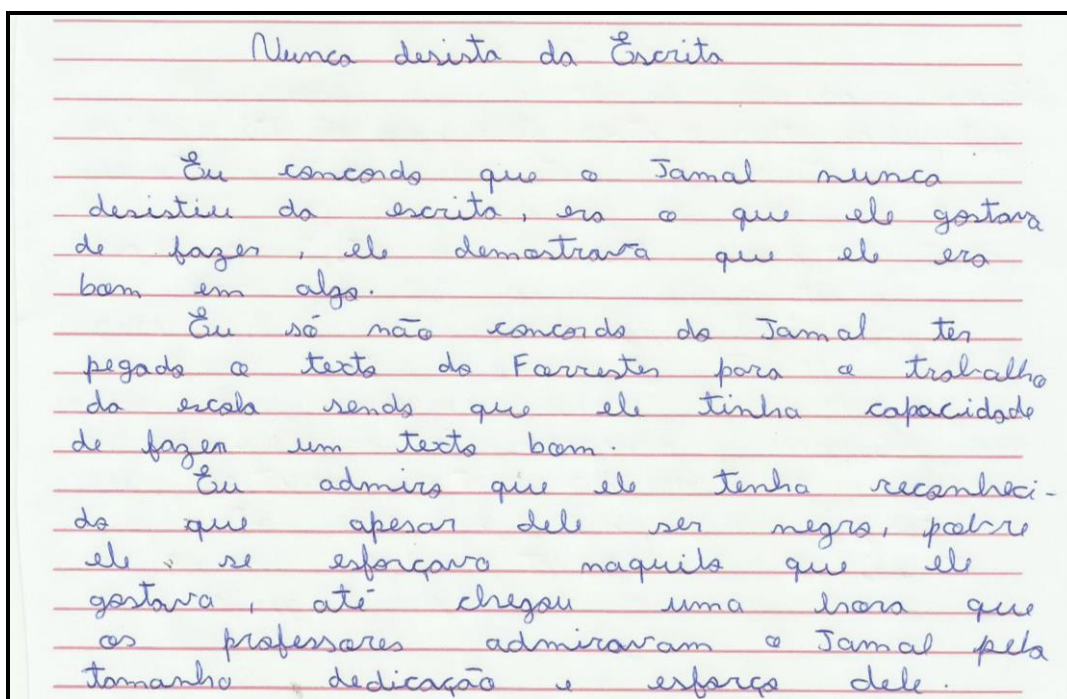 Nunca desista da Escrita
Eu concordo que o Jamal nunca
desistiu da escrita, era o que ele gostava
de fazer, ele demostrava que ele era
bom em algo.
Eu só não concordo do Jamal ter
pegado o texto do Forrester para o trabalho
da escola sendo que ele tinha capacidade
de fazer um texto bom.
Eu admiro que ele tenha reconheci-
do que apesar dele ser negro, pobre
ele se esforçava naquilo que ele
gostava, até chegou uma hora que
os professores admiravam o Jamal pela
tamanho dedicação e esforço dele.